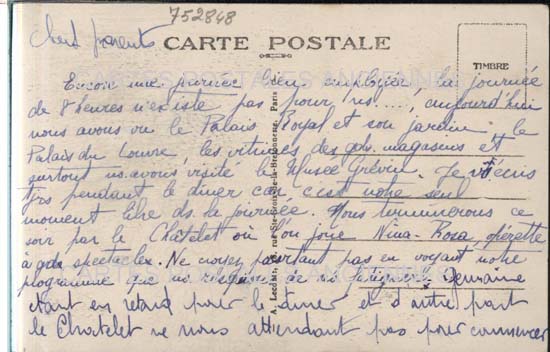 752848
chers parents
CARTE POSTALE
TIMBRE
Encore une journée bien employée, la journée
de 8 heures n'existe pas pour ns...., aujourd'hui
nous avons vu le Palais Royal et son jardin le
Palais du Louvre, les vitrines des gds magasins et
surtout ns. avons visité le Musée Grévin. Je écris
tjrs pendant le dîner car c'est notre seul
moment libre ds. la journée. Nous terminerons ce
soir par le Châtelet où on joue Nina-Rosa, opérette
à gds spectacles. Ne croyez pourtant pas en voyant notre
programme que ns Germaine
étant en retard pour le dîner et d'autre part
le Chatelet ne nous attendant pas pour commencer
A. Leconte, 38, rue Ste-Croix-de-la-Bretonnerie, Paris
CARTES POSTALES ANCIENNES
CARTES POSTALES ANCIENNES